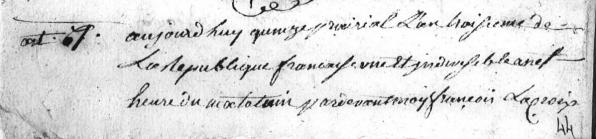 art. 39. aujourd huy quinze prairial L'an troisieme de
La Republique francaise une et indivisible a neuf
heure du matatuin pardevant moy françois Lacroix
44